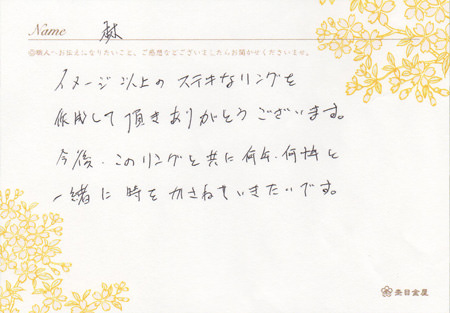 Name 林
◎職人へお伝えになりたいこと、ご感想などございましたらお聞かせくださいませ。
イメージ以上の ステキなリングを
作成して頂きありがとうございます。
今後、このリングと共に何年、何十年と
一緒に時をかさねていきたいです。
杢目金屋